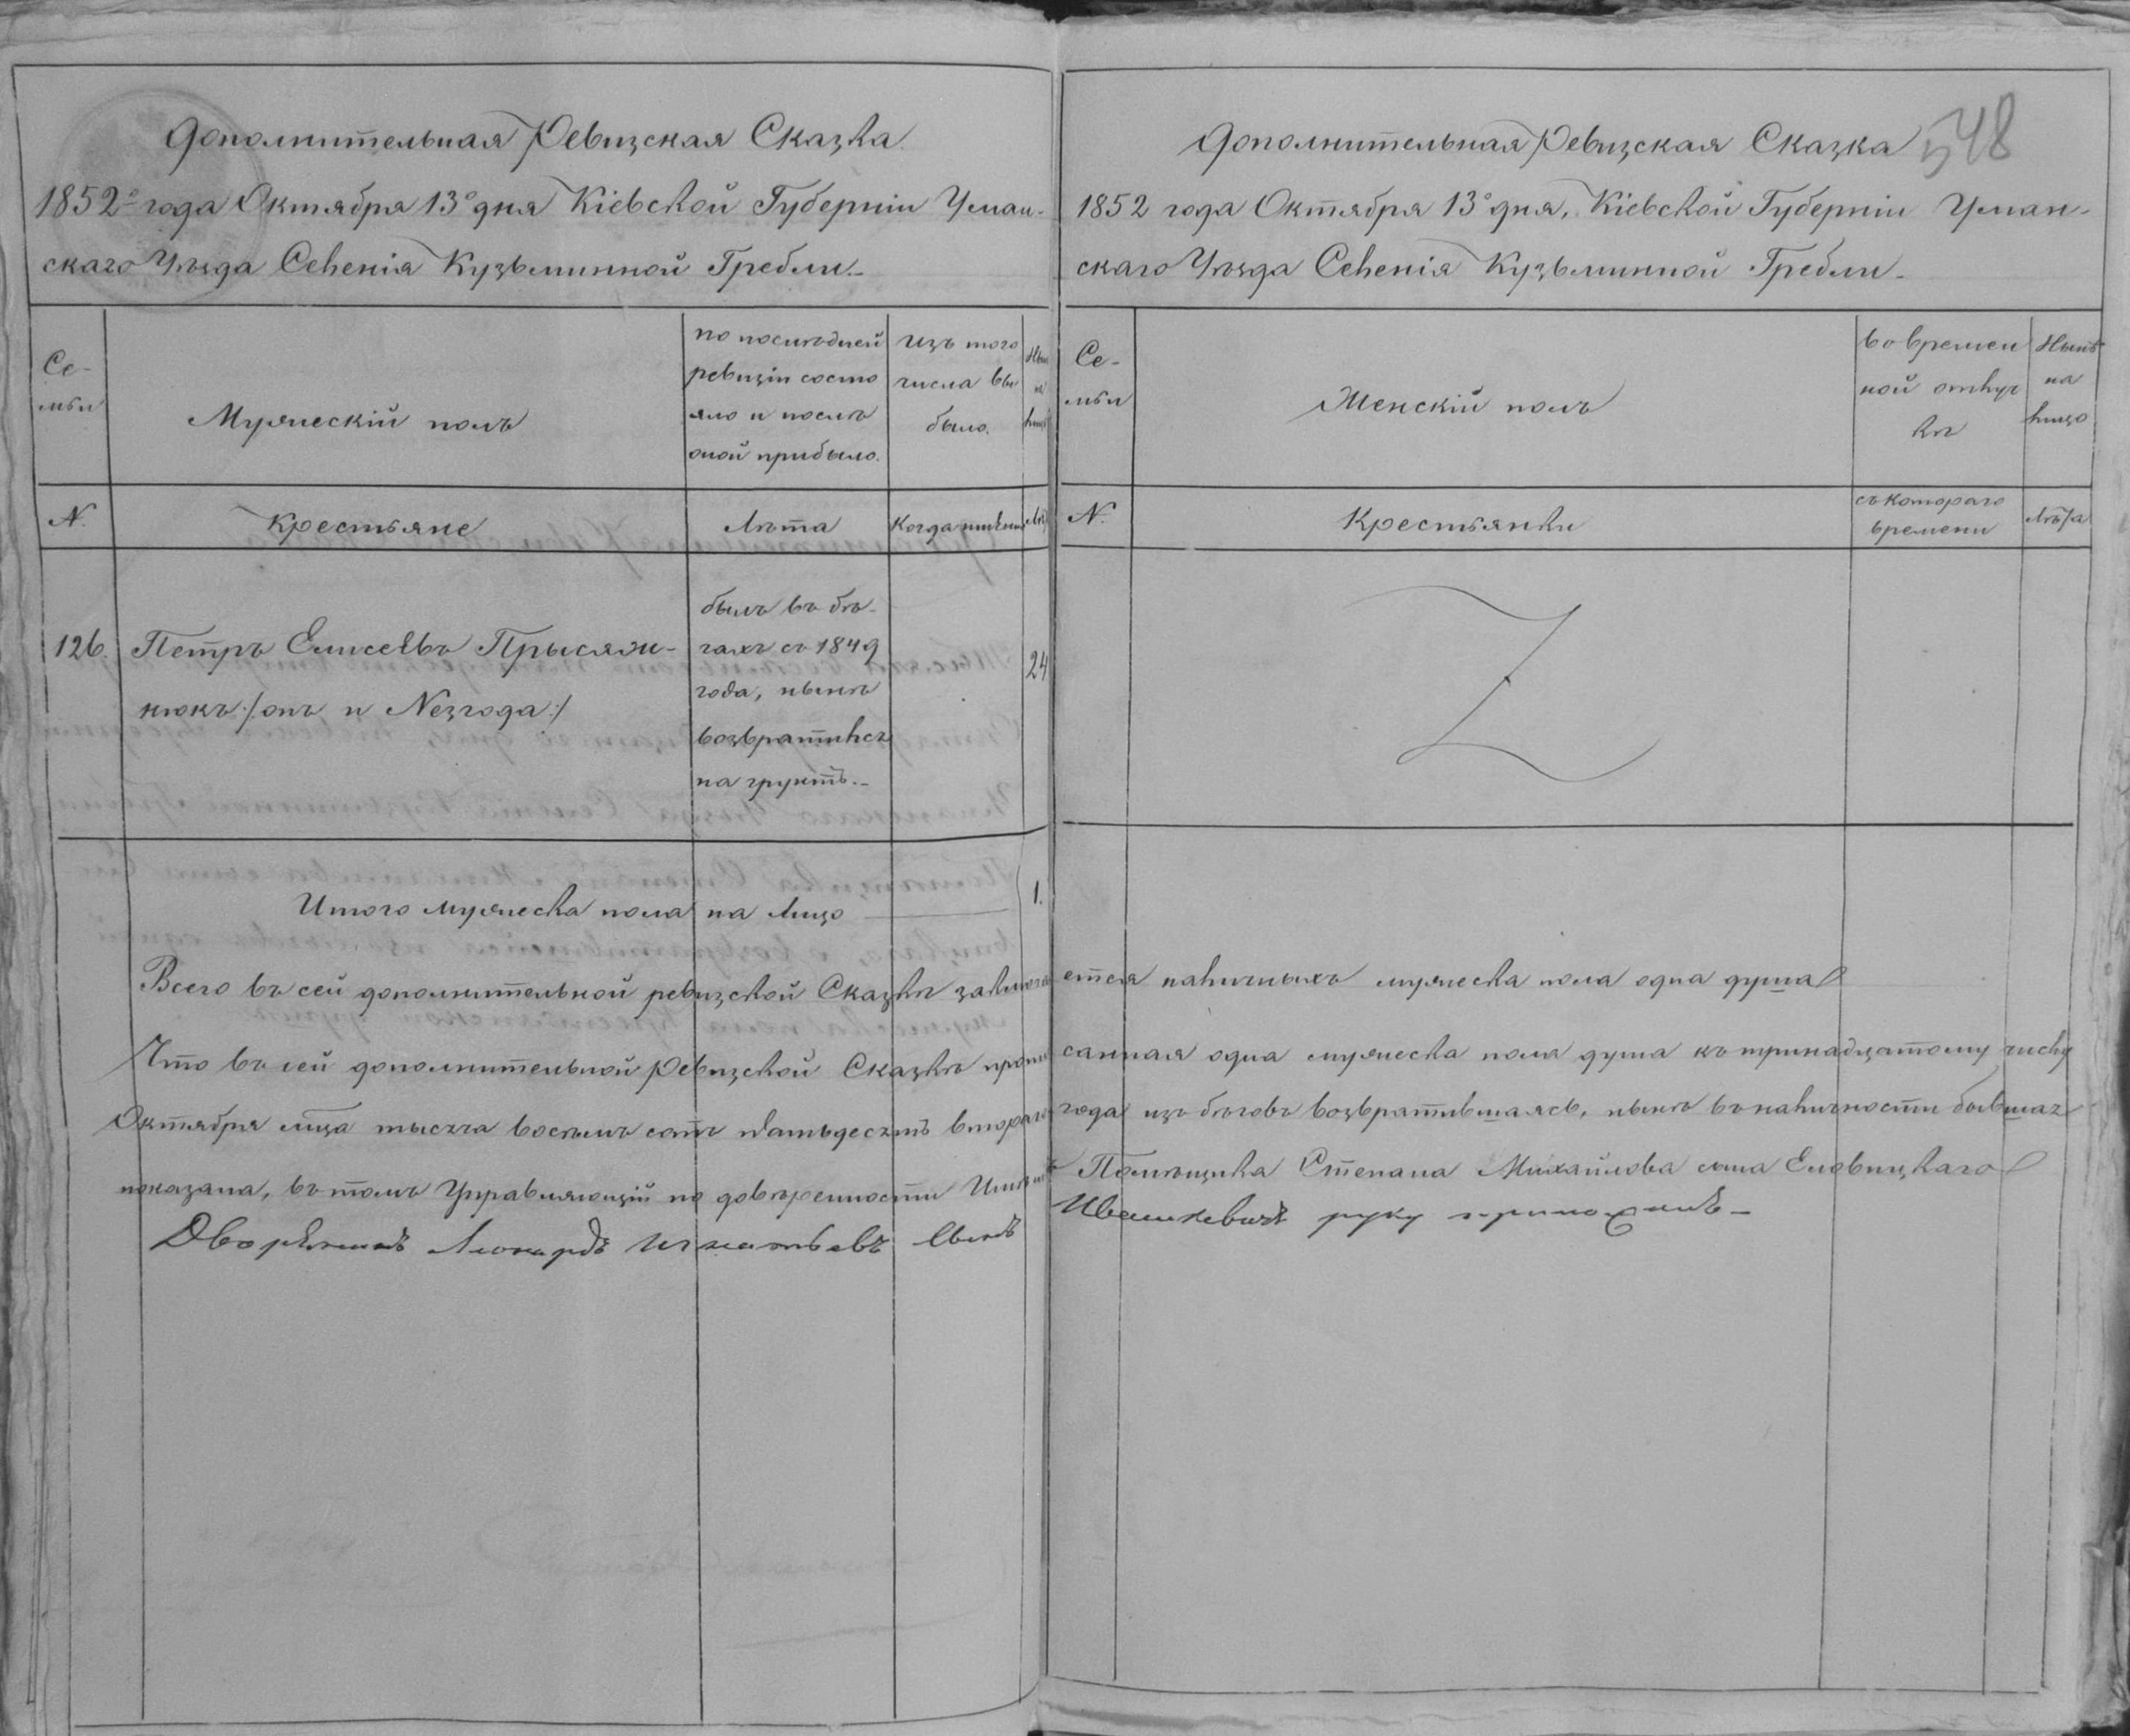 Дополнительная Ревизская Сказка
1852го года Октября 13го дня Кіевской Губерніи Уман-
скаго Уѣзда Селенія Кузьминной Гребли.-
Се-
мьи
Мужескій полъ
по послѣдней
ревизіи состо
яло и послѣ
оной прибыло.
изъ того
числа вы
было.
Нынѣ
на
лицо
N.
Крестьяне
Лѣта
Когда именно
Лѣта
126.
Петръ Елисеевъ Прысяж-
нюкъ /:онъ и Незгода:/
былъ въ бѣ-
гахъ съ 1849
года, нынѣ
возвратился
на грунтъ.-
24
Итого мужеска пола на лицо
1.
548
Дополнительная Ревизская Сказка
1852 года Октября 13го дня, Кіевской Губерніи Уман-
скаго Уѣзда Селенія Кузьминной Гребли-
Се-
мьи
Женскій полъ
во времен
ной отлуч
кѣ
Нынѣ
на
лицо
N.
Крестьянки
съ котораго
времени
Лѣта
Всего въ сей дополнительной ревизской Сказкѣ заключается наличныхъ мужеска пола одна душа
Что въ сей дополнительной Ревизской Сказкѣ прописанная одна мужеска пола душа къ тринадцатому числу
Октября мца тысяча восемь сотъ пятьдесятъ втораго года изъ бѣговъ возвратившаясь, нынѣ въ наличности бывшая
показана, въ томъ Управляющій по довѣренности Имѣніемъ Помѣщика Степана Михайлова сына Еловицкаго
Дворянинъ Леонардъ Игнатьевъ сынъ Ивашкевичъ руку приложилъ-